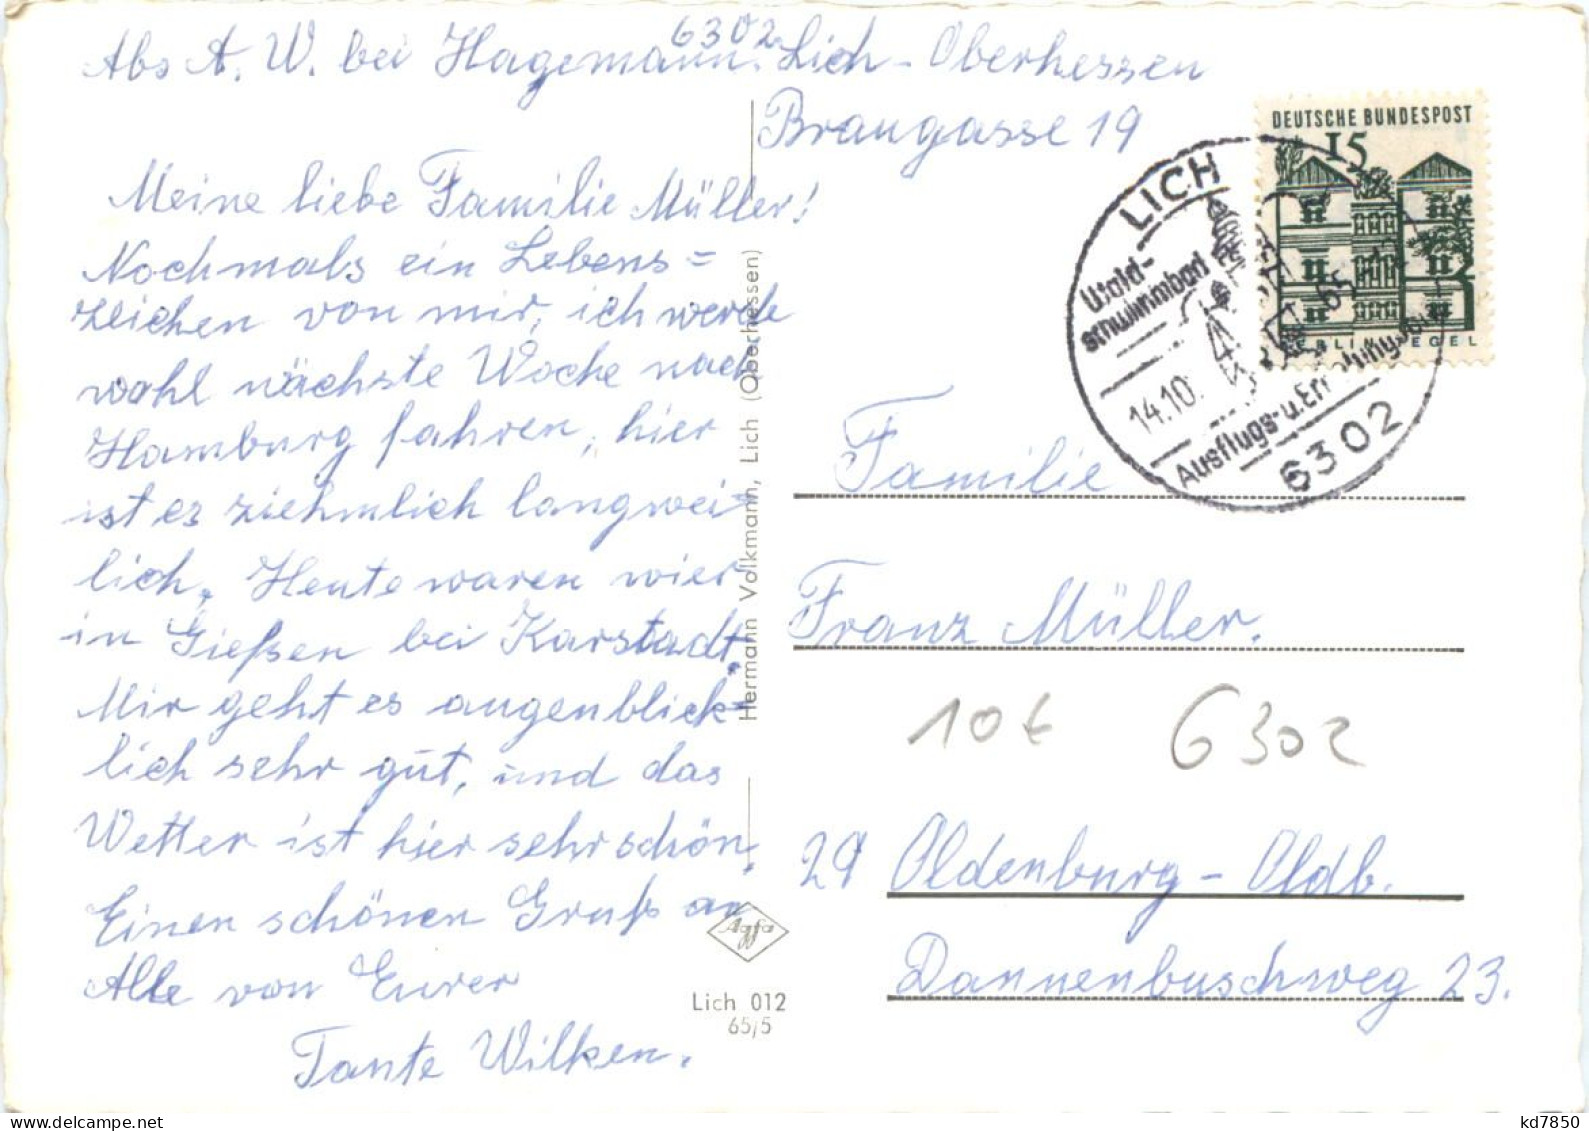 6302
Abs A. W. bei Hagemann. Lich - Oberhessen
Braugasse 19
Meine liebe Familie Müller!
Nochmals ein Lebens=
zeichen von mir, ich werde
wohl nächste Woche nach
Hamburg fahren, hier
ist es ziehmlich langwei=
lich. Heute waren wier
in Gießen bei Karstadt.
Mir geht es augenblick=
lich sehr gut, und das
Wetter ist hier sehr schön.
Einen schönen Gruß an
Alle von Eurer
Tante Wilken.
Hermann Volkmann, Lich (Oberhessen)
Agfa
Lich 012
65/5
DEUTSCHE BUNDESPOST
15
BERLIN TEGEL
LICH
Wald-
schwimmbad
14.10.
Ausflugs- u. Erholungsort
6302
Familie
Franz Müller.
10 € 6302
29 Oldenburg - Oldb.
Dannenbuschweg 23.
kd7850